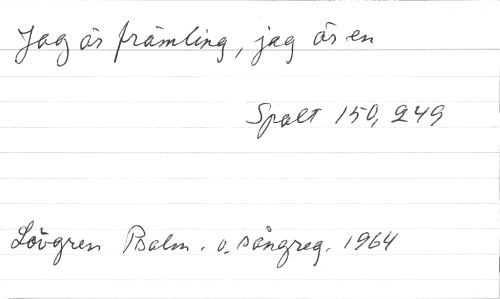 Jag är främling, jag är en
Spalt 150, 249
Lövgren Psalm. o. sångreg. 1964